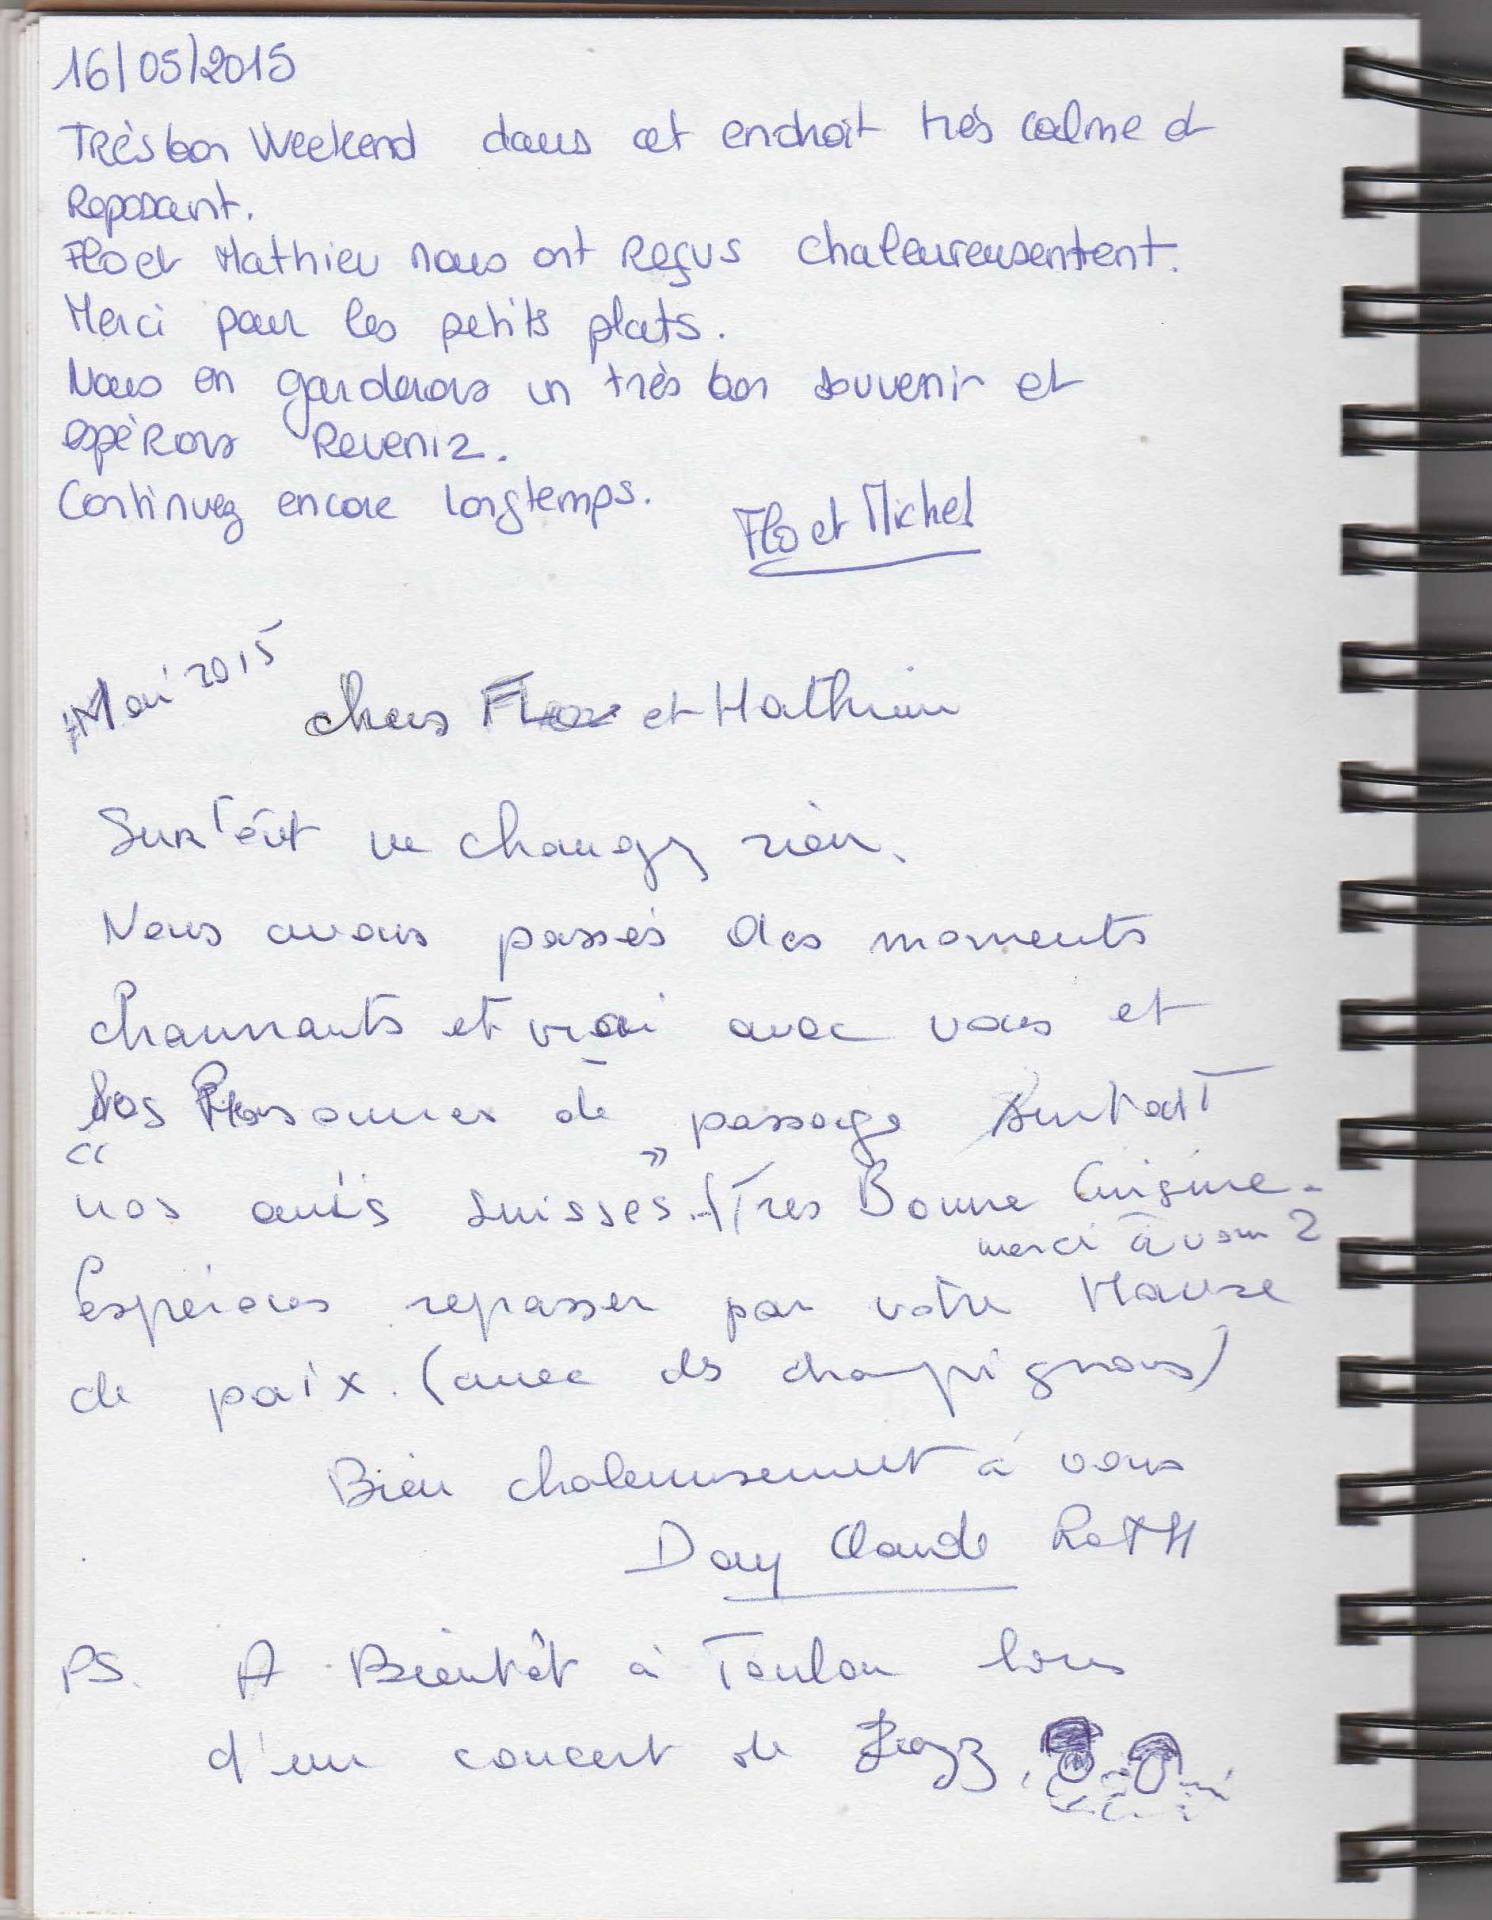 16/05/2015
Très bon Weekend dans cet endroit très calme et
Reposant.
Flo et Mathieu nous ont Reçus chaleureusentent.
Merci pour les petits plats.
Nous en garderons un très bon souvenir et
espèrons Revenir.
Continuez encore longtemps.
Flo et Michel
Mai 2015
chers Flo et Mathieu
Surtout ne changez rien.
Nous avons passés des moments
Charmants et vrai avec vous et
Vos Personnes de passage surtout
"nos amis suisses". Très Bonne Cuisine.
merci à vous 2
Espérons repasser par votre Havre
de paix. (avec ds champignons)
Bien chaleureusement à vous
Dany Claude RoTH
PS. A Bientôt à Toulon lors
d'un concert de Jazz.